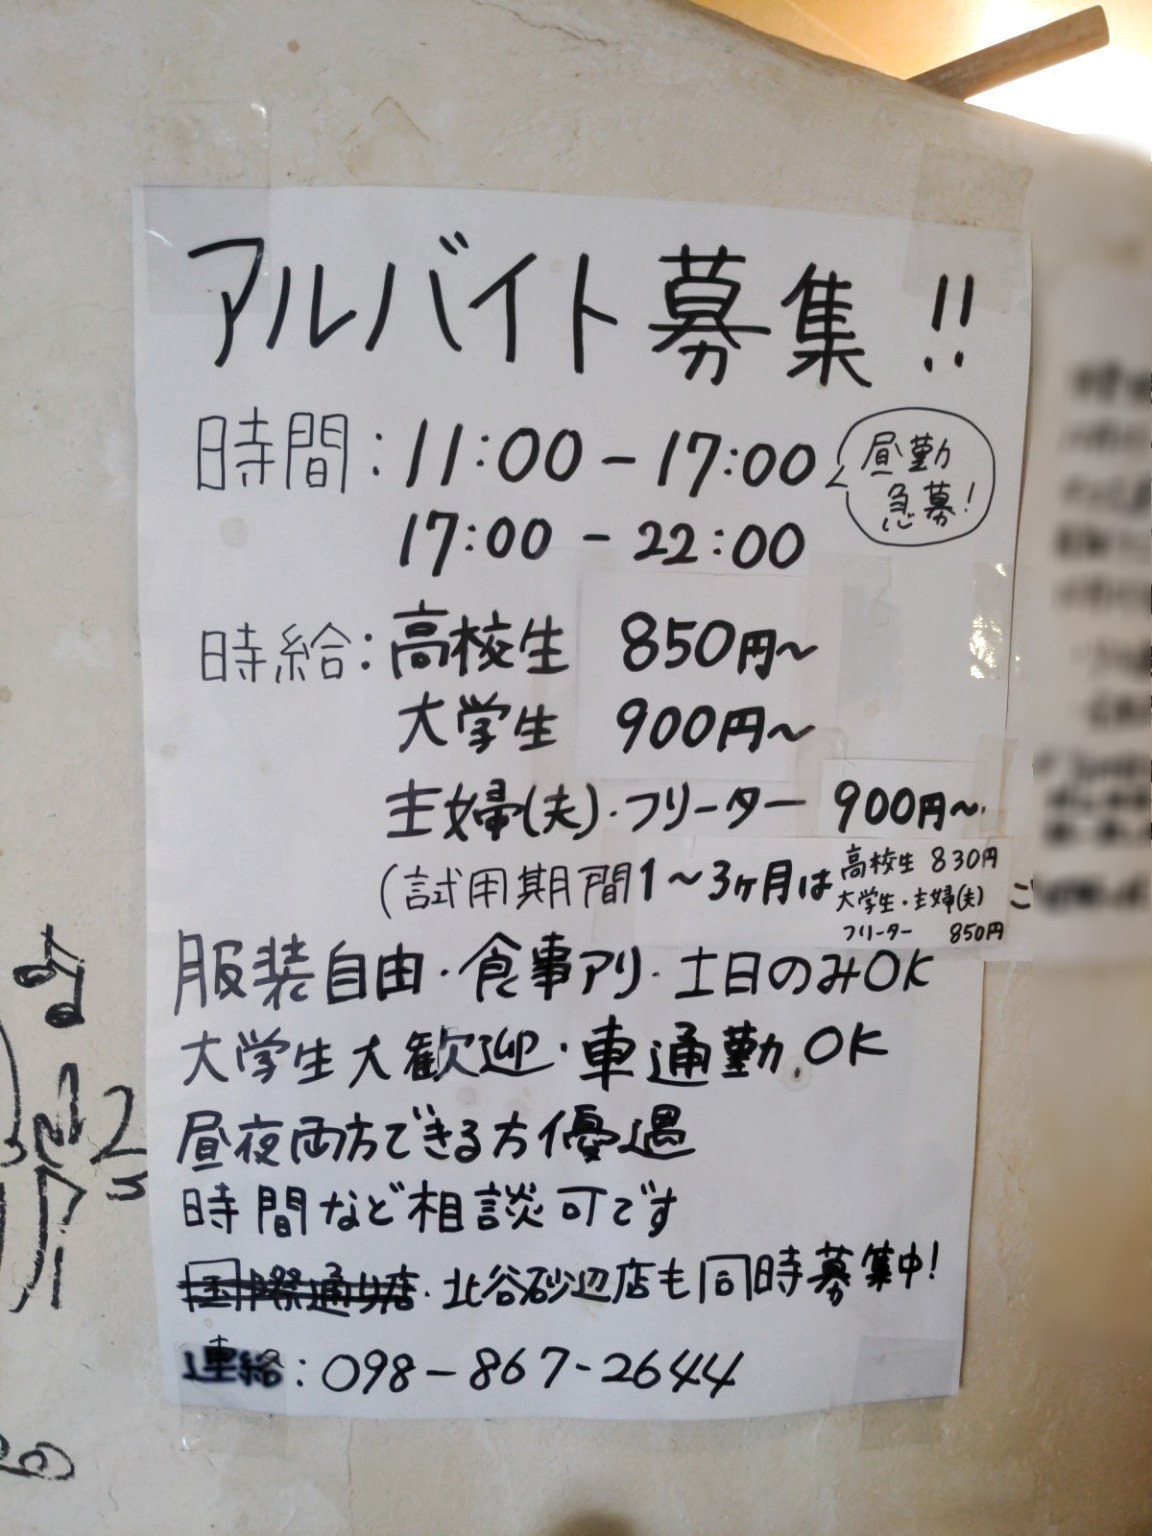 アルバイト募集!!
時間：11:00 - 17:00
昼勤
急募!
17:00 - 22:00
時給：高校生 850円〜
大学生 900円〜
主婦(夫)・フリーター 900円〜
(試用期間1〜3ヶ月は
高校生 830円
大学生・主婦(夫)
フリーター 850円
服装自由・食事アリ・土日のみOK
大学生大歓迎・車通勤OK
昼夜両方できる方優遇
時間など相談可です
国際通り店・北谷砂辺店も同時募集中!
連絡：098-867-2644